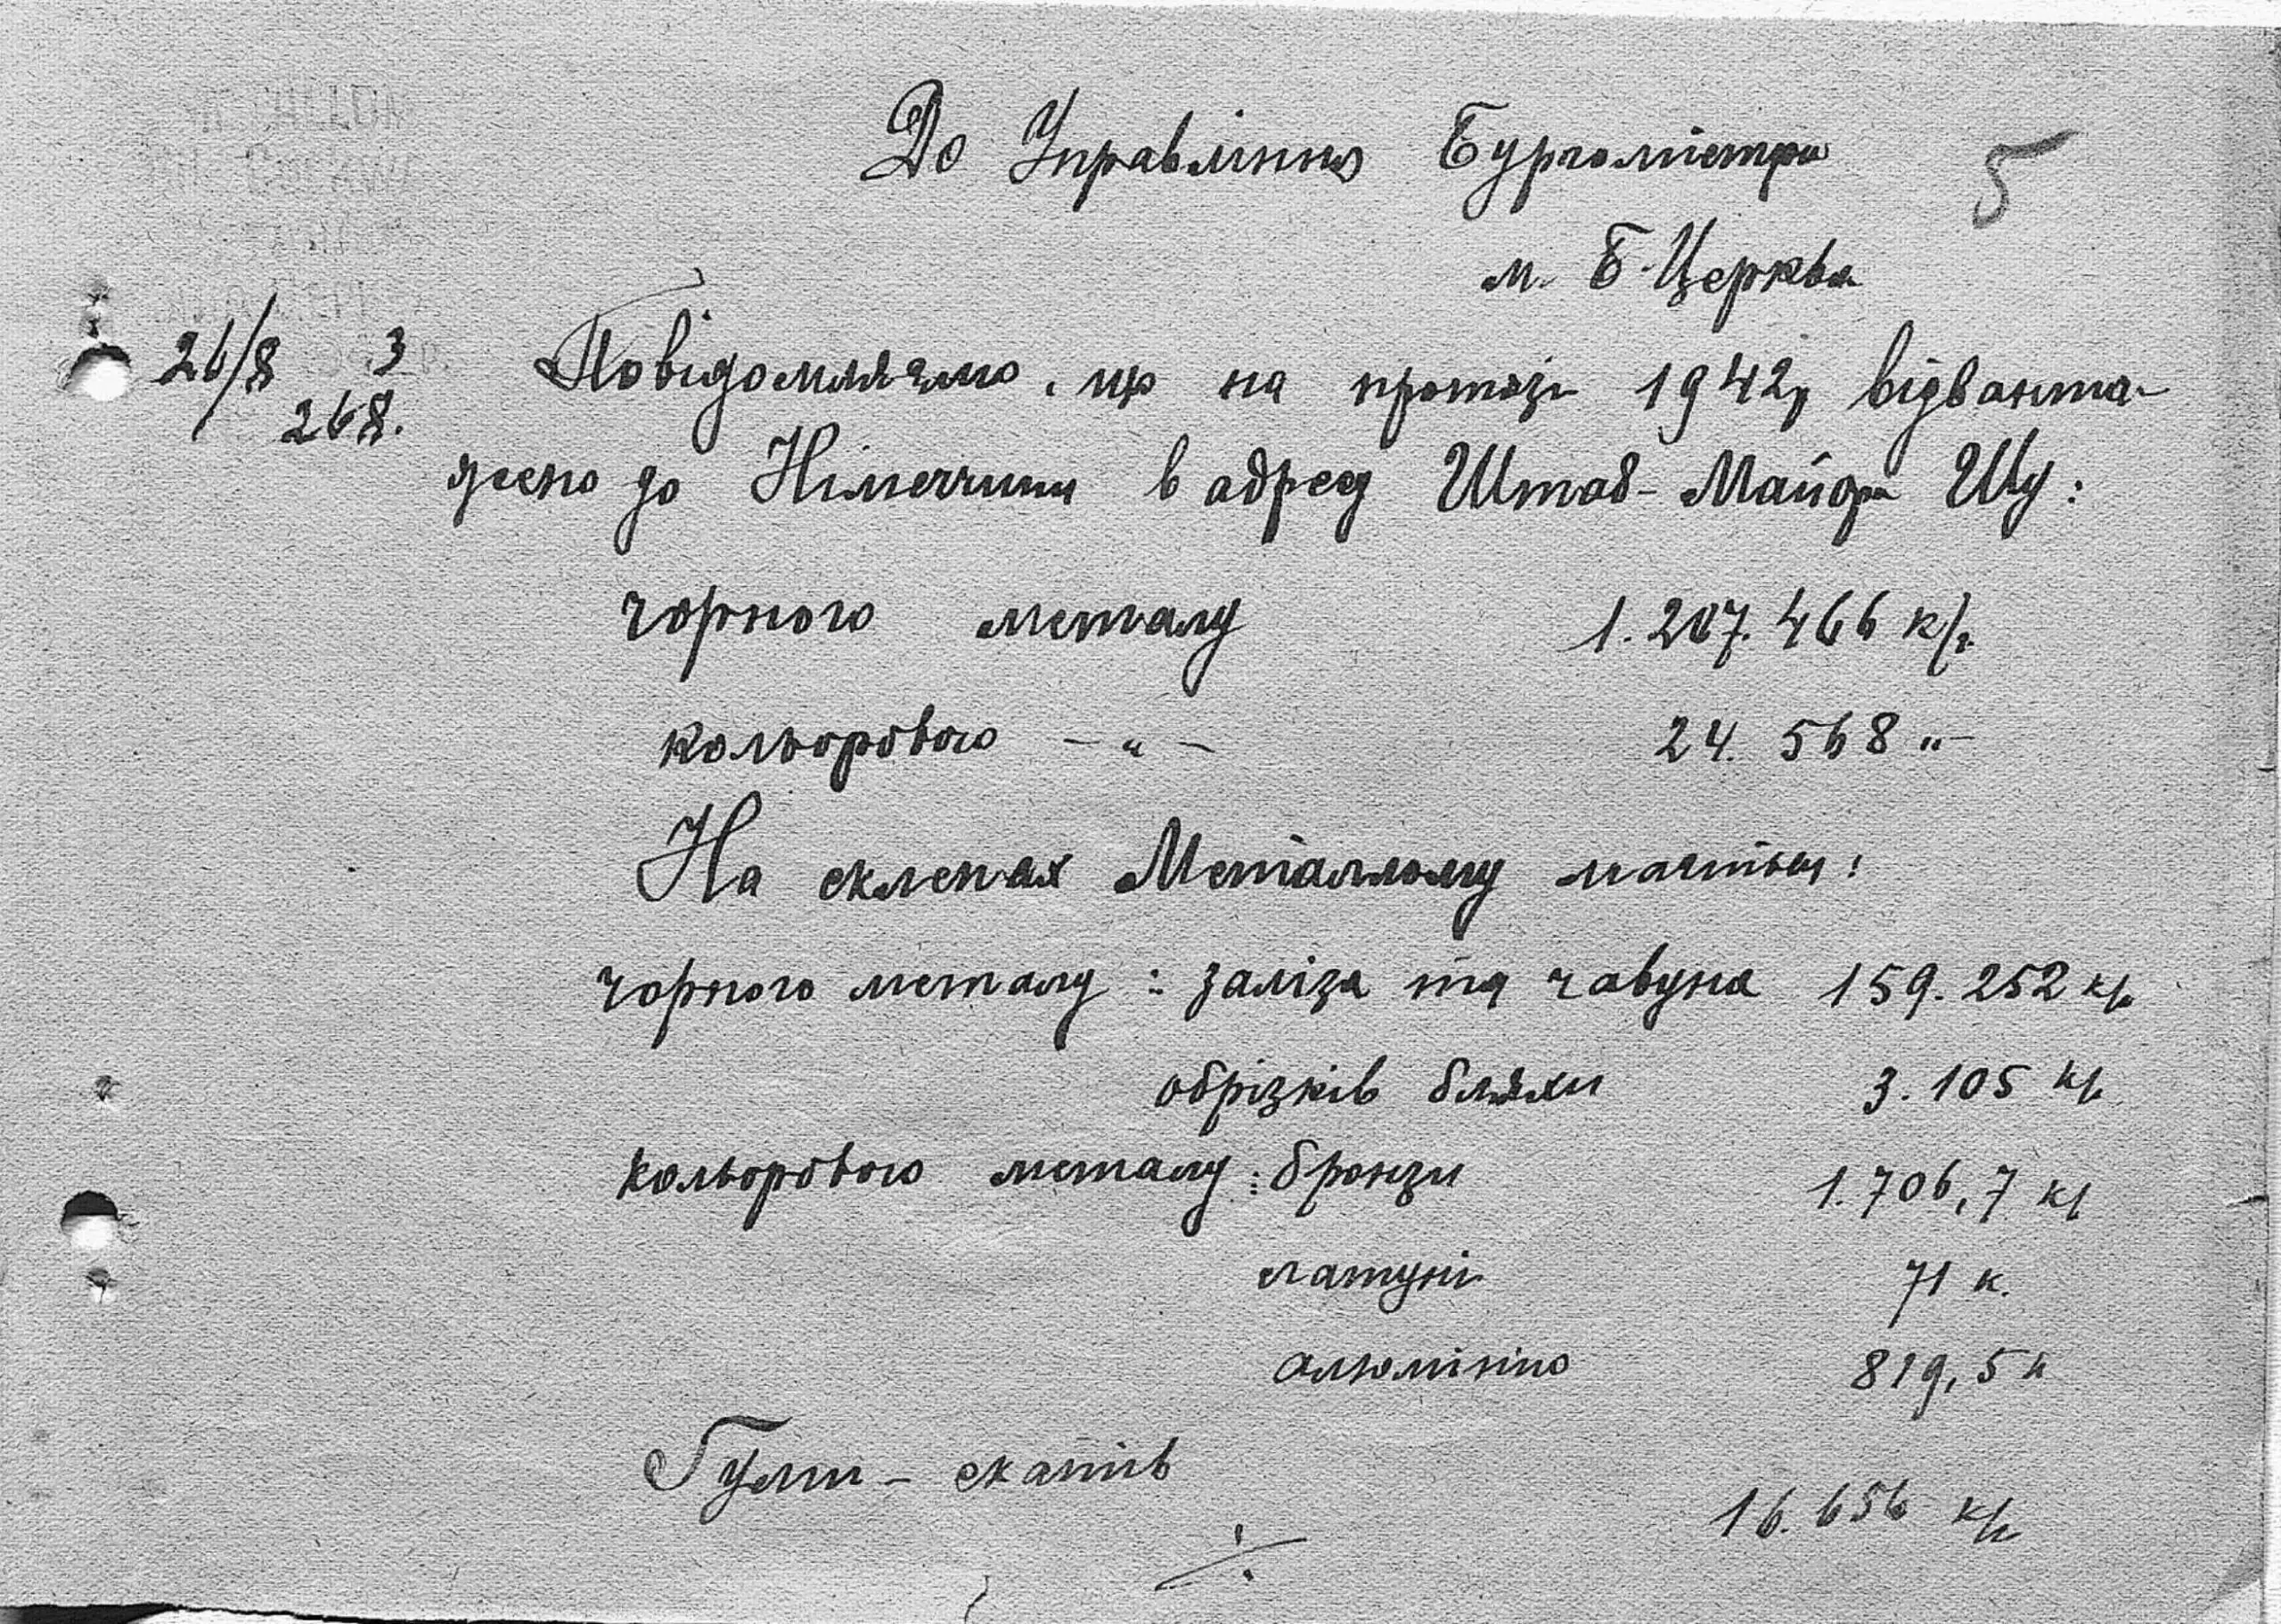 До Управління Бургомістра
5
м. Б-Церква
26/8 3
268.
Повідомляємо, що на протязі 1942р відванта-
жено до Німеччини в адресу Штаб-Майора Шу:
чорного металу 1.207.466 к/г.
кольорового — " — 24.568 " —
На склепах Металлому мається:
чорного металу: заліза та чавуна 159.252 к/г
обрізків бляхи 3.105 к/г
кольорового металу: бронзи 1.706,7 к/г
латуні 71 к.
алюмінію 819,5 к
Гуми - скатів
16.656 к/г